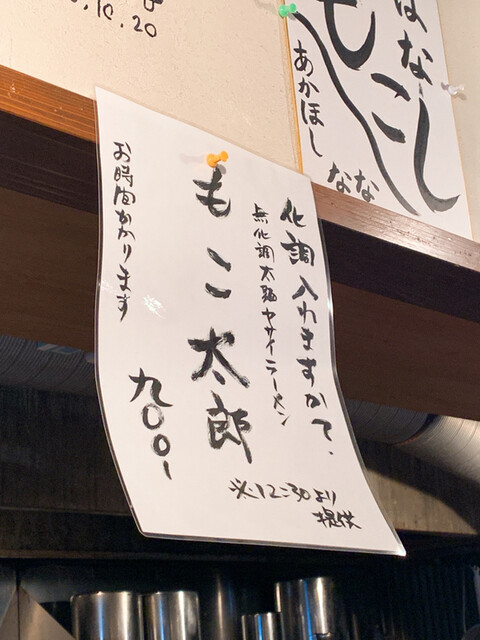 化調入れますかて、
無化調太麺ヤサイラーメン
もこ太郎
九〇〇-
お時間かかります
※12:30より
提供
はなし
もこ
あかほし
なな
.10.20